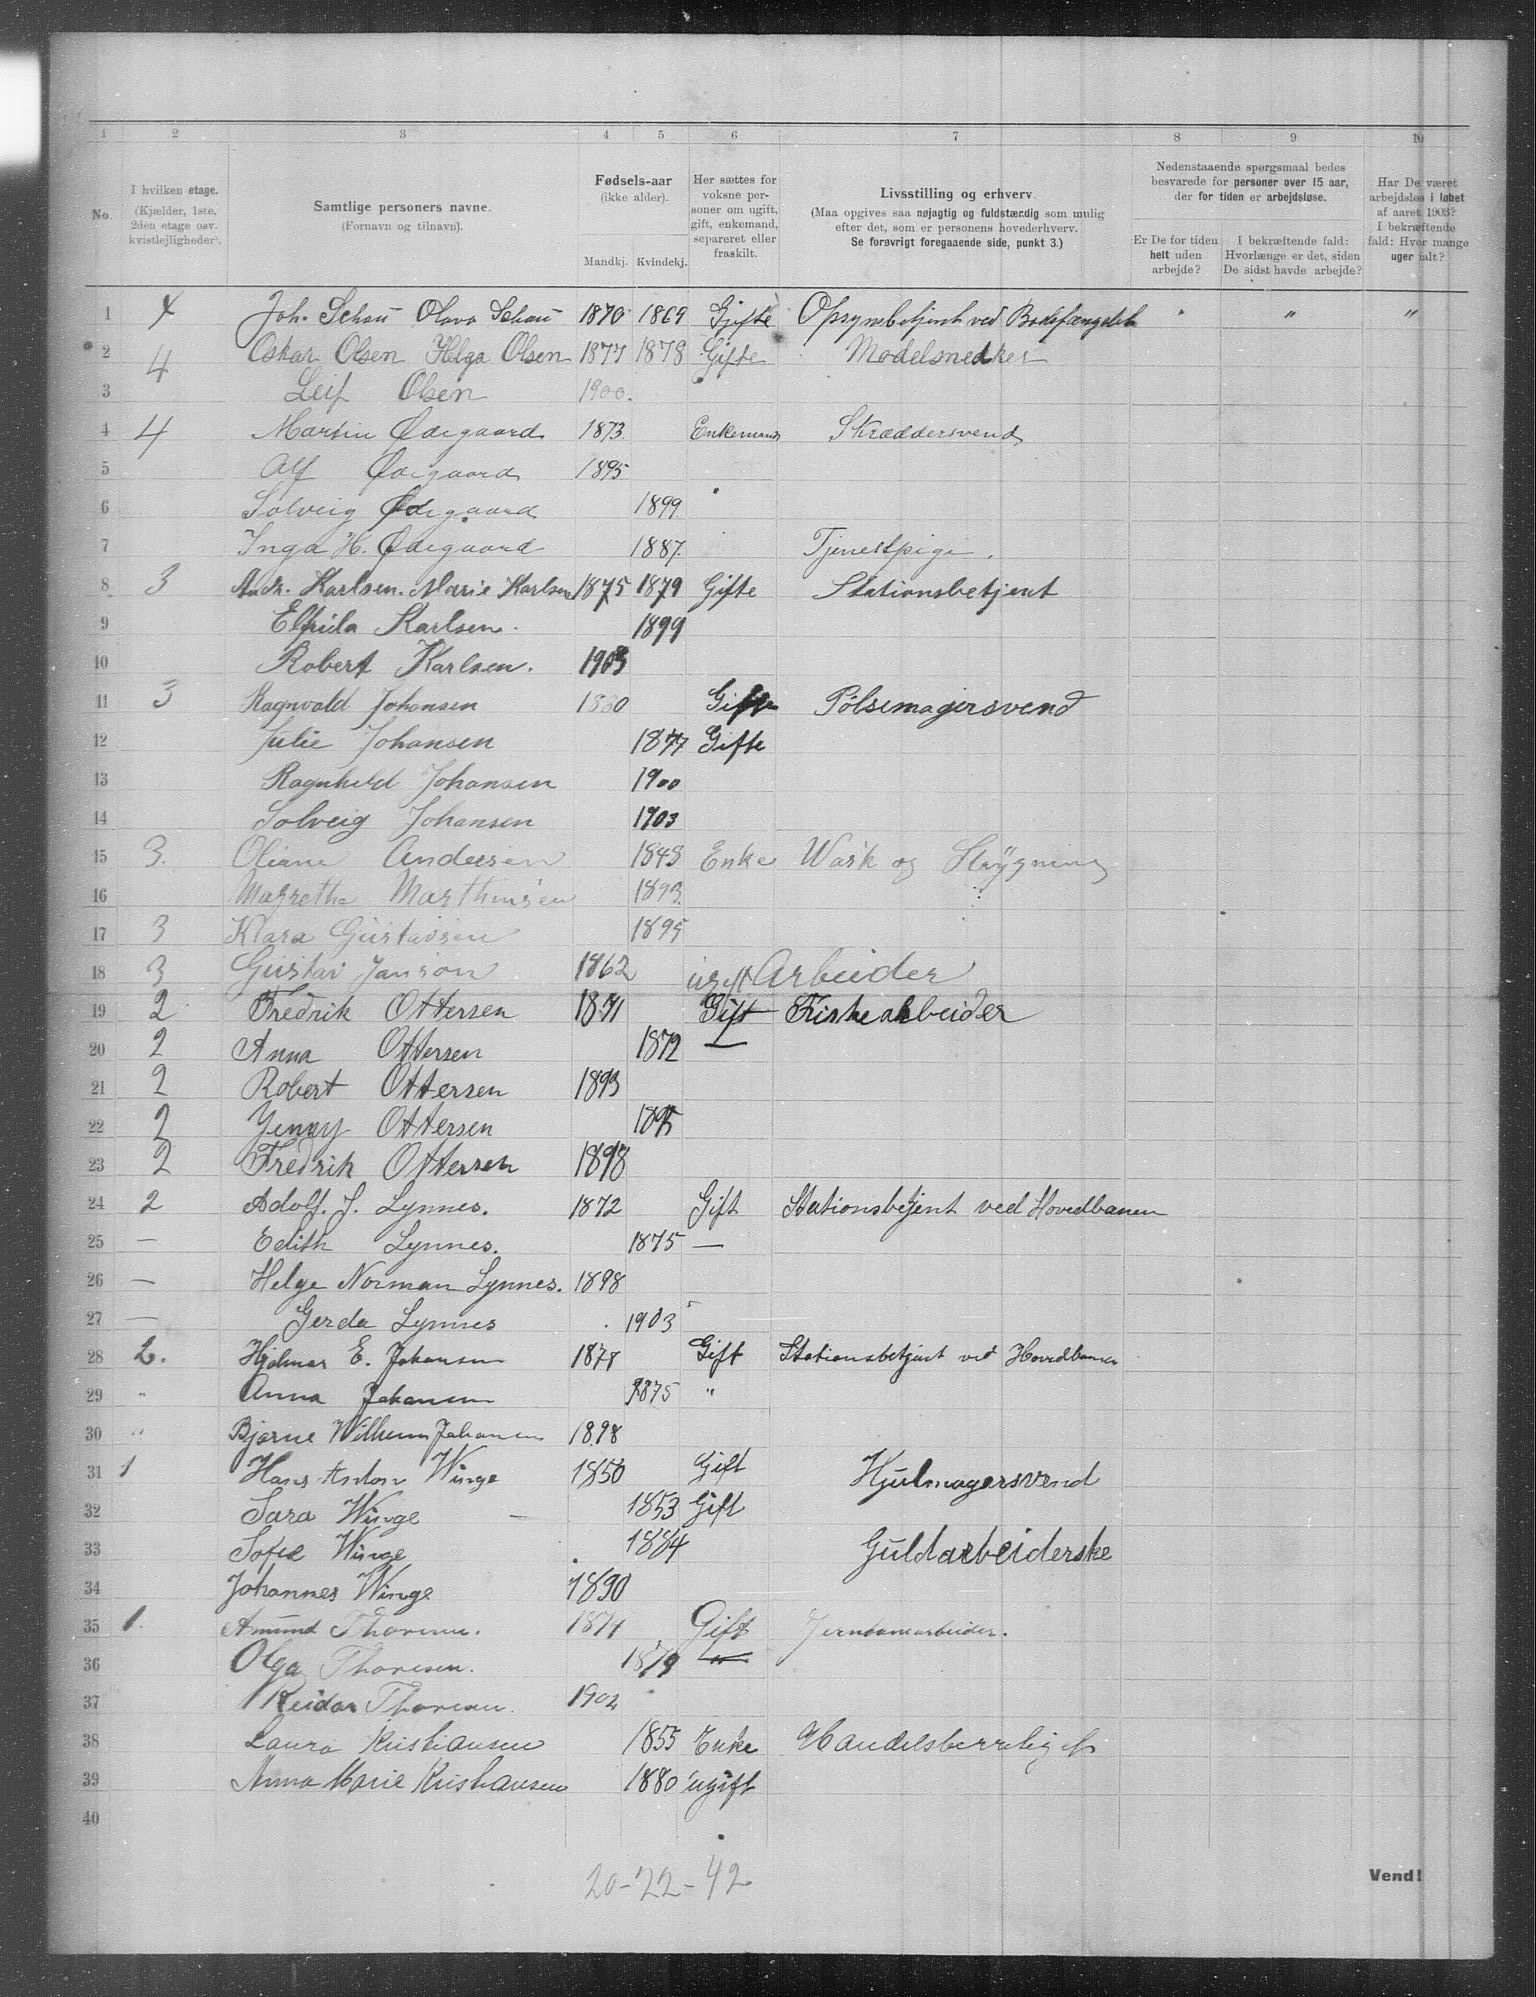 1 2 3 4 5 6 7 8 9 10
No. I hvilken etage. (Kjælder, 1ste, 2den etage osv. kvistlejligheder). Samtlige personers navne. (Fornavn og tilnavn). Fødsels-aar (ikke alder). Mandkj. Kvindekj. Her sættes for voksne personer om ugift, gift, enkemand, separeret eller fraskilt. Livsstilling og erhverv. (Maa opgives saa nøjagtig og fuldstændig som mulig efter det, som er personens hovederhverv. Se forøvrigt foregaaende side, punkt 3.) Nedenstaaende spørgsmaal bedes besvarede for personer over 15 aar, der for tiden er arbejdsløse. Er De for tiden helt uden arbejde? I bekræftende fald: Hvorlænge er det, siden De sidst havde arbejde? Har De været arbejdsløs i løbet af aaret 1903? I bekræftende fald: Hvor mange uger ialt?
1 4 Joh. Schou Olava Schou 1870 1869 Gifte Opsynsbetjent ved Bodsfængslet " " "
2 4 Oskar Olsen Helga Olsen 1877 1878 Gifte Modelsnedker
3 Leif Olsen 1900.
4 4 Martin Ødegaard 1873 Enkemand Skræddersvend
5 Alf Ødegaard 1895
6 Solveig Ødegaard 1899
7 Inga H. Ødegaard 1887. Tjenestpige.
8 3 Andr. Karlsen. Marie Karlsen 1875 1879 Gifte Stationsbetjent
9 Elfrida Karlsen. 1899
10 Robert Karlsen. 1903
11 3 Ragnvald Johansen 1880 Gifte Pölsemagersvend
12 Julie Johansen 1877 Gifte
13 Ragnhild Johansen 1900
14 Solveig Johansen 1903
15 3. Oliane Andersen 1848 Enke Wask og Strygning
16 Margrethe Marthinsen 1893.
17 3 Klara Gustavsen 1895
18 3 Gustav Janson 1862 ugift Arbeider
19 2 Fredrik Ottersen 1871 Gift Fiskearbeider
20 2 Anna Ottersen 1872 —
21 2 Robert Ottersen 1893
22 2 Jenny Ottersen 1895
23 2 Fredrik Ottersen 1898
24 2 Adolf. J. Lynnes. 1872 Gift Stationsbetjent ved Hovedbanen
25 — Edith Lynnes. 1875 —
26 — Helge Norman Lynnes. 1898
27 — Gerda Lynnes 1903
28 2. Hjalmar E. Johansen 1878 Gift Stationsbetjent ved Hovedbanen
29 " Anna Johansen 1875 "
30 " Bjarne Wilhelm Johansen 1898
31 1 Hans Anton Winge 1850 Gift Hjulmagersvend
32 Sara Winge 1853 Gift
33 Sofie Winge 1884 Guldarbeiderske
34 Johannes Winge 1890
35 1. Amund Thoresen. 1871 Gift Jernbanearbeider.
36 Olga Thoresen. 1879 "
37 Reidar Thoresen. 1902
38 Laura Kristiansen 1855 Enke
39 Anna Marie Kristiansen 1880 ugift
40
20-22-42
Vend!